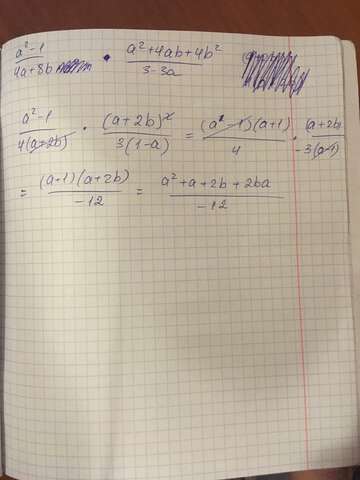 a²-1 / 4a+8b · a²+4ab+4b² / 3-3a
a²-1 / 4(a+2b) · (a+2b)² / 3(1-a) = (a-1)(a+1) / 4 · (a+2b) / -3(a-1)
= (a+1)(a+2b) / -12 = a²+a+2b+2ba / -12